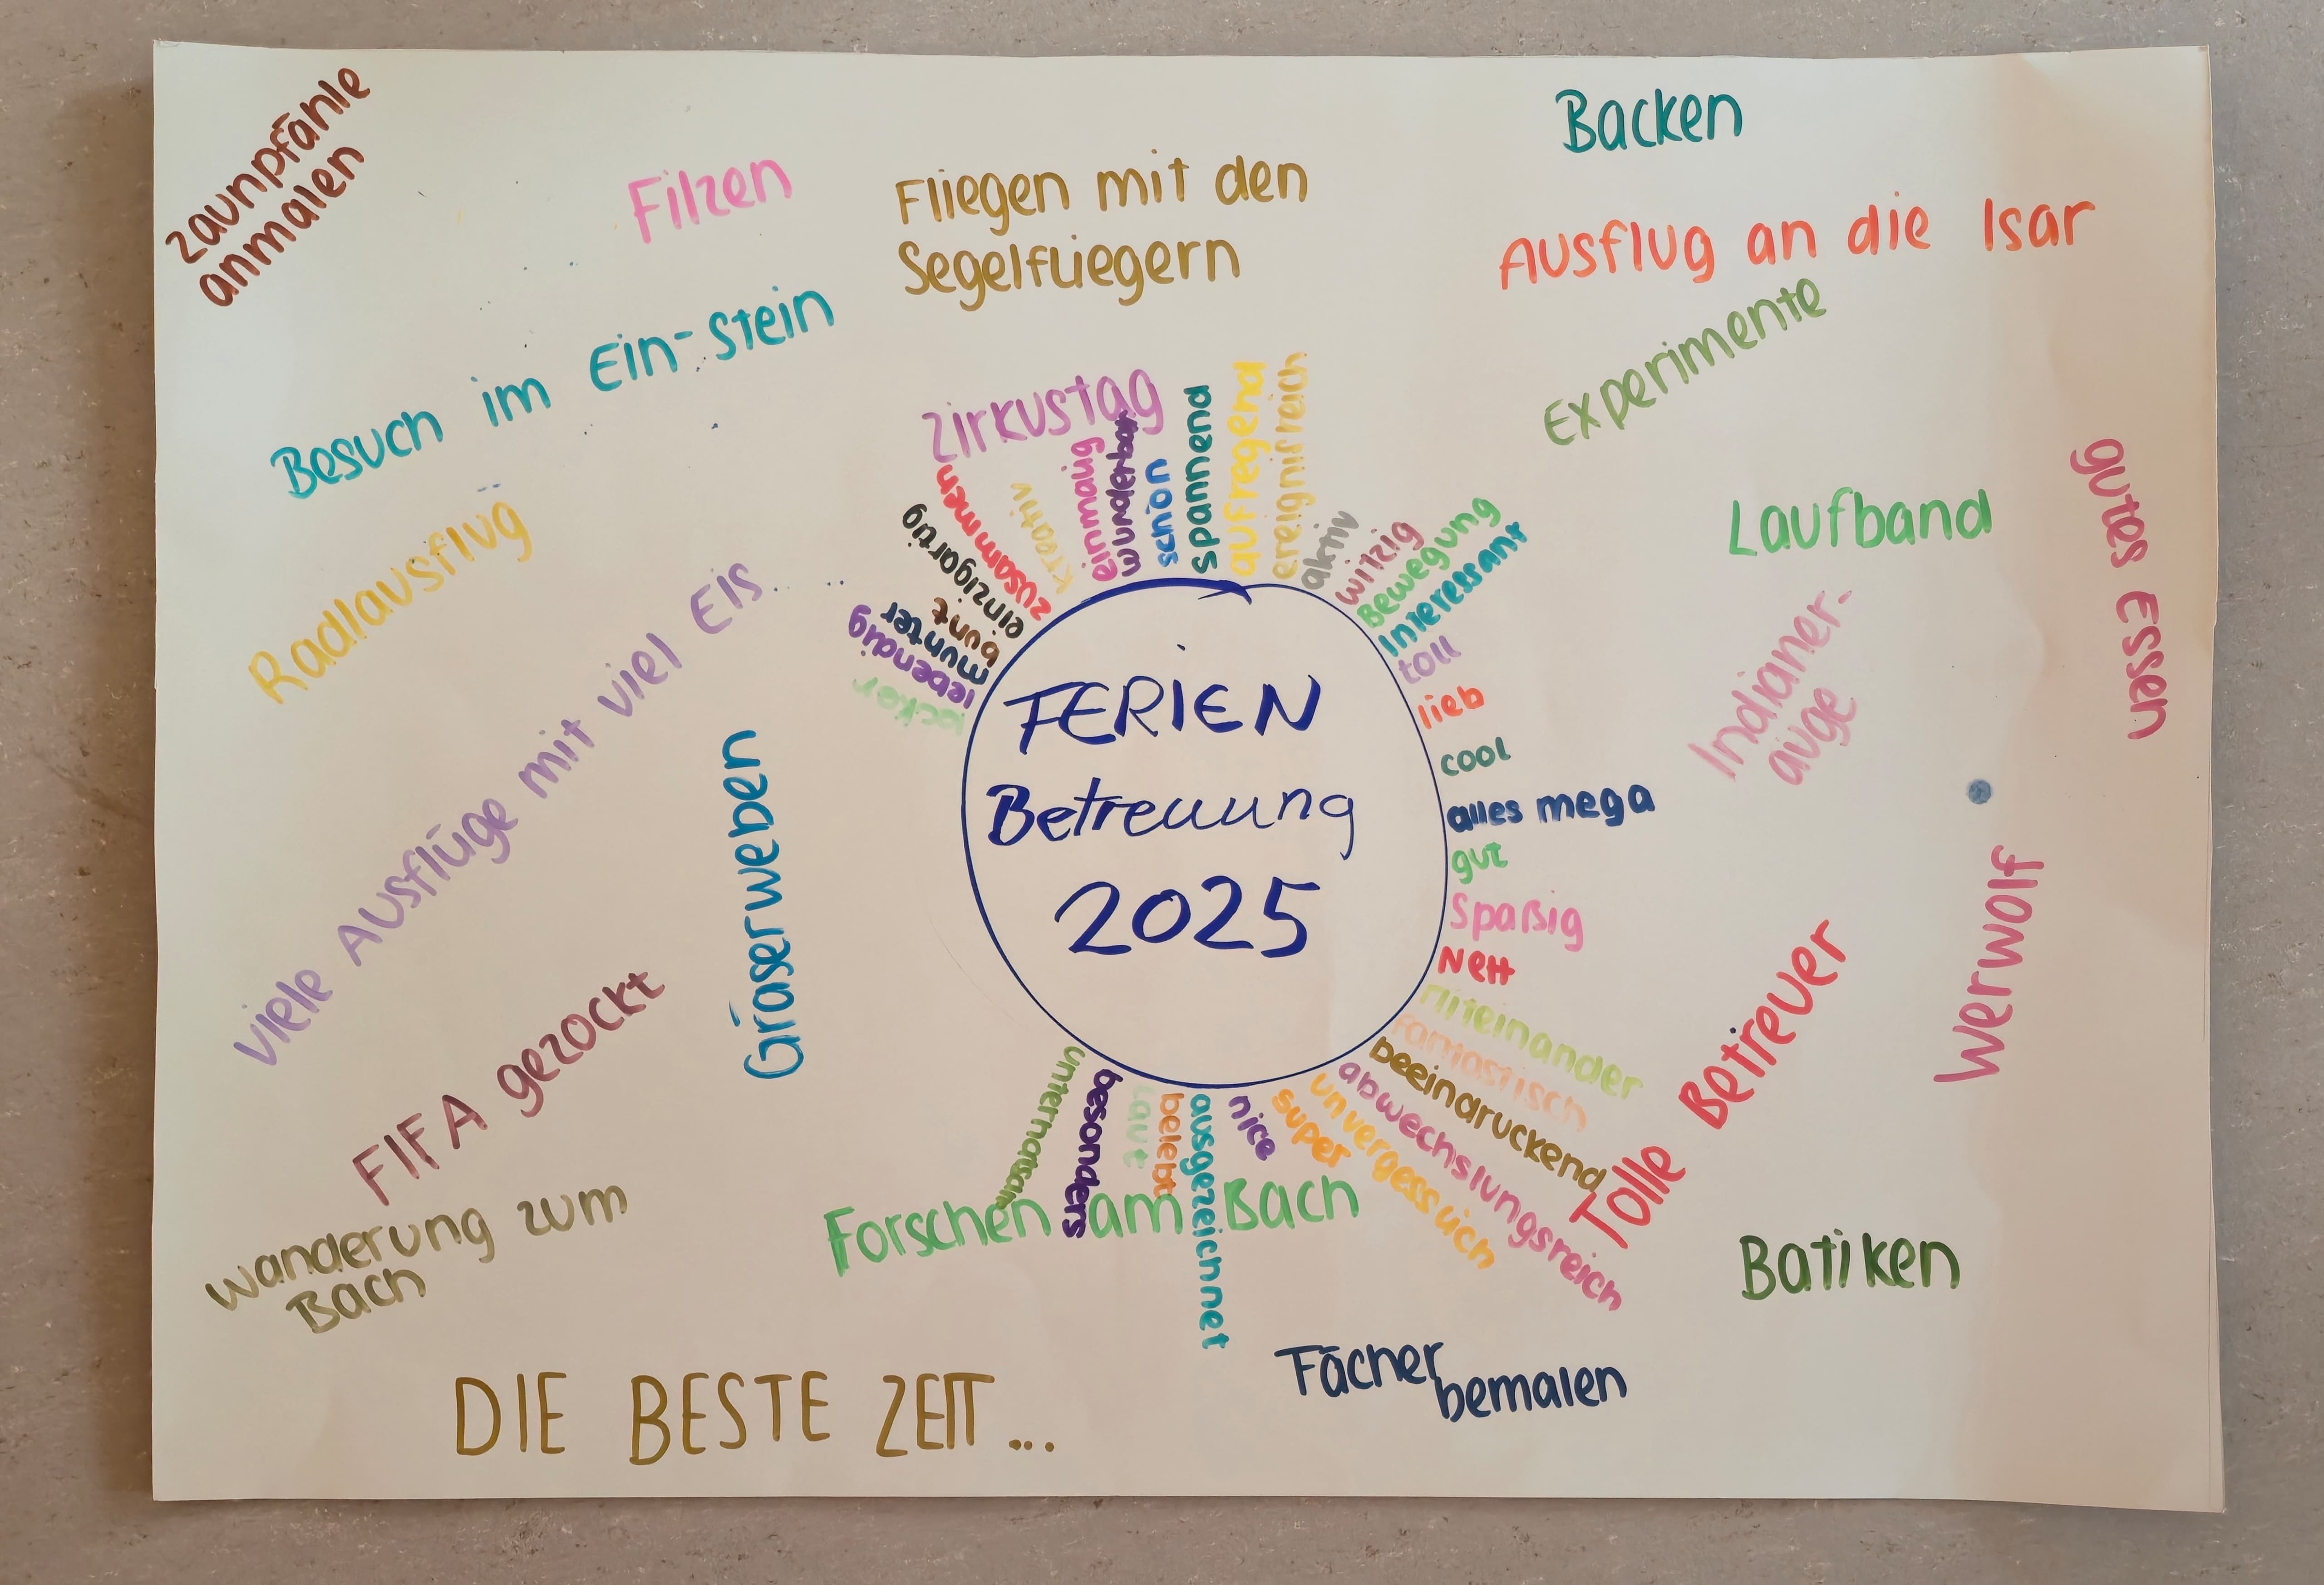 zaunpfähle
anmalen
Filzen
Fliegen mit den
Segelfliegern
Backen
Ausflug an die Isar
Besuch im Ein-Stein
Experimente
Radlausflug
Zirkustag
Laufband
gutes Essen
viele Ausflüge mit viel Eis...
Indianer-
auge
Gräserweben
FERIEN
Betreuung
2025
locker
lebendig
munter
bunt
einzigartig
zusammen
kreativ
einmalig
wunderbar
schön
spannend
aufregend
ereignisreich
aktiv
witzig
Bewegung
Interessant
toll
lieb
cool
alles mega
gut
Spaßig
Nett
Miteinander
fantastisch
beeindruckend
abwechslungsreich
unvergesslich
super
nice
ausgezeichnet
belebt
laut
besonders
unterhaltsam
Werwolf
Tolle Betreuer
FIFA gezockt
Wanderung zum
Bach
Forschen am Bach
Batiken
Fächer
bemalen
DIE BESTE ZEIT...